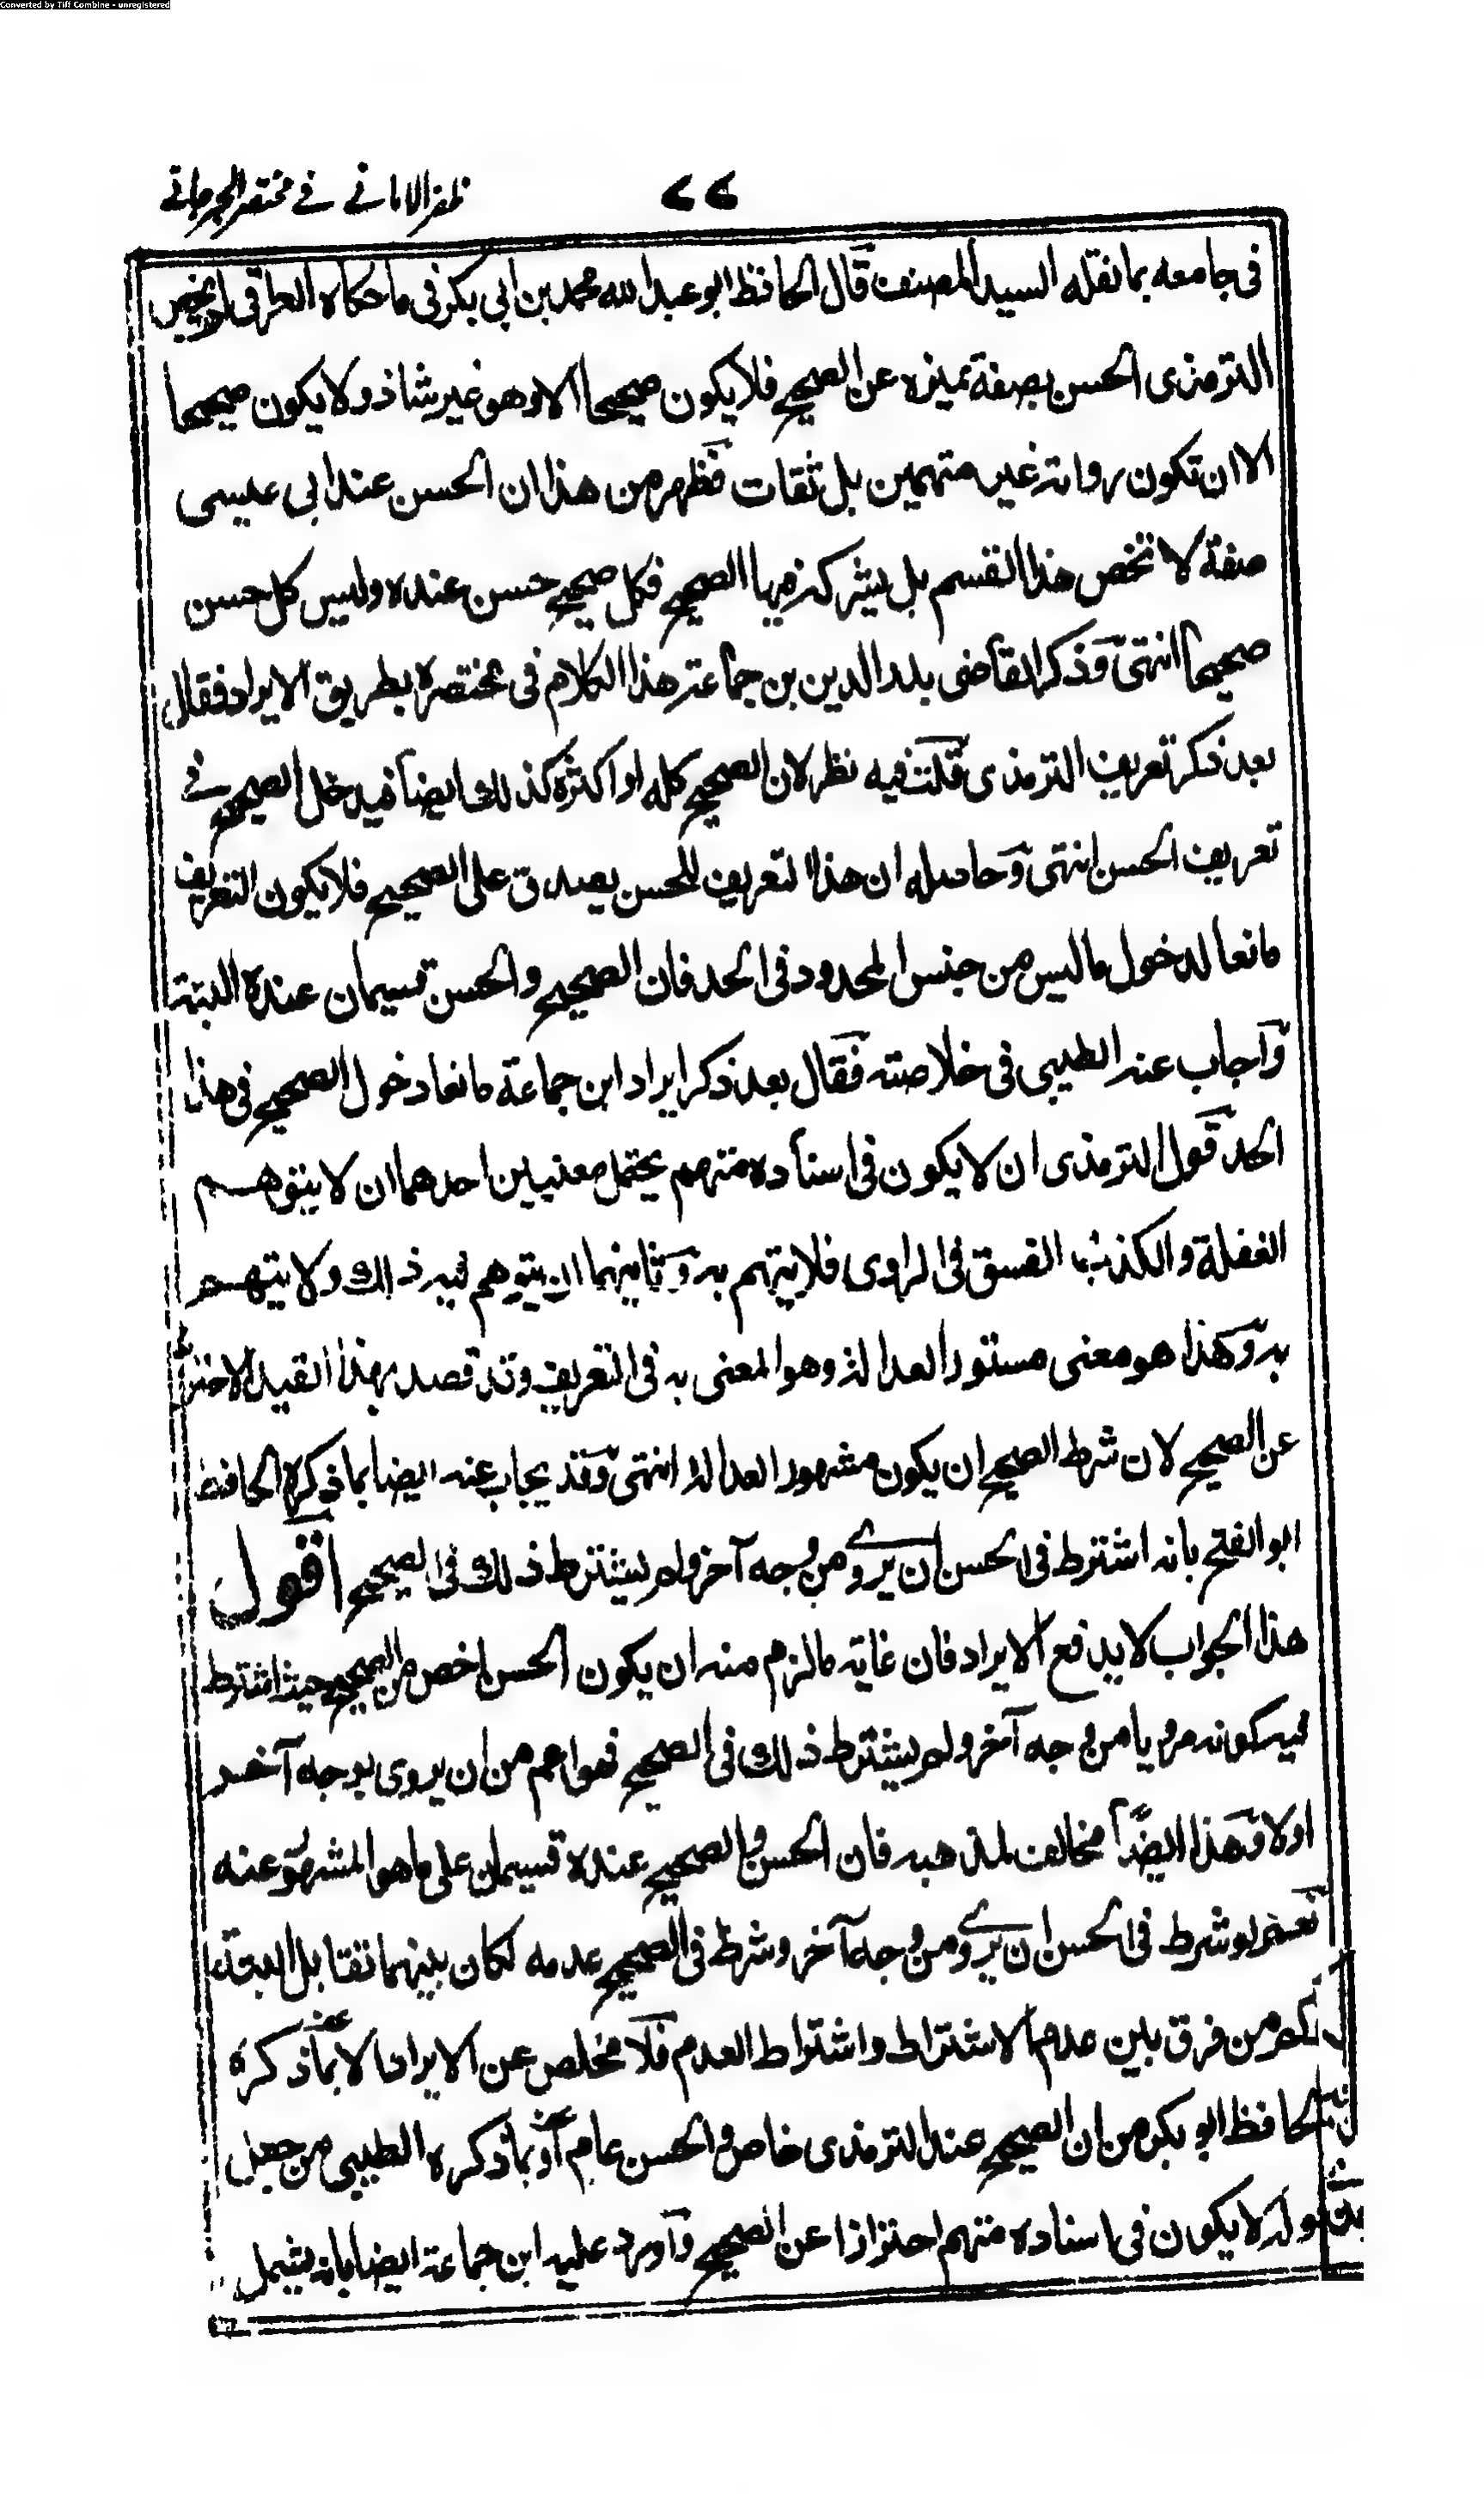 Converted by Tiff Combine - unregistered
ظفر الامانے فے مختصر الجرجانے
۷۷
فى جامعه بما نقله السيد المصنف قال الحافظ ابو عبد الله محمد بن ابى بكر فى ما حكاه العراقى لم يخص
الترمذى الحسن بصفة تميزه عن الصحيح فلا يكون صحيحا الا وهو غير شاذ ولا يكون صحيحا
الا ان تكون رواته غير متهمين بل ثقات فظهر من هذا ان الحسن عند ابى عيسى
صفة لا تخص هذا القسم بل يشركه فيها الصحيح فكل صحيح حسن عنده وليس كل حسن
صحيحا انتهى وذكر القاضى بدر الدين بن جماعة هذا الكلام فى مختصره بطريق الايراد فقال
بعد ذكر تعريف الترمذى قلت فيه نظر لان الصحيح كله او اكثره كذلك ايضا فيدخل الصحيح فے
تعريف الحسن انتهى وحاصله ان هذا التعريف للحسن يصدق على الصحيح فلا يكون التعريف
مانعا لدخول ما ليس من جنس المحدود فى الحد فان الصحيح والحسن قسيمان عنده البتة
واجاب عنه الطيبى فى خلاصته فقال بعد ذكر ايراد ابن جماعة مانعا دخول الصحيح فى هذا
الحد قول الترمذى ان لا يكون فى اسناده متهم يحتمل معنيين احدهما ان لا يتوهم
الغفلة والكذب الفسق فى الراوى فلا يتهم به وثانيهما ان يتوهم فيه ذلك ولا يتهم
به وهذا هو معنى مستور العدالة وهو المعنى به فى التعريف وقد قصد بهذا القيد الاحتراز
عن الصحيح لان شرط الصحيح ان يكون مشهور العدالة انتهى وقد يجاب عنه ايضا بما ذكره الحافظ
ابو الفتح بانه اشترط فى الحسن ان يروے من وجه آخر ولم يشترط ذلك فى الصحيح اقول
هذا الجواب لا يدفع الايراد فان غاية ما لزم منه ان يكون الحسن اخص من الصحيح حيث اشترط
فيه كونه مرويا من وجه آخر ولم يشترط ذلك فى الصحيح فهو اعم من ان يروى بوجه آخر
اولا وهذا ايضا مخالف لمذهبه فان الحسن والصحيح عنده قسيمان على ما هو المشهور عنه
نعم لو شرط فى الحسن ان يروے من وجه آخر وشرط فى الصحيح عدمه لكان بينهما تقابل البتة
كم من فرق بين عدم الاشتراط واشتراط العدم فلا مخلص عن الايراد الا بما ذكره
الحافظ ابو بكر من ان الصحيح عند الترمذى خاص والحسن عام او بما ذكره الطيبى من جعل
قوله لا يكون فى اسناده متهم احترازا عن الصحيح واورد عليه ابن جماعة ايضا بانه يشمل